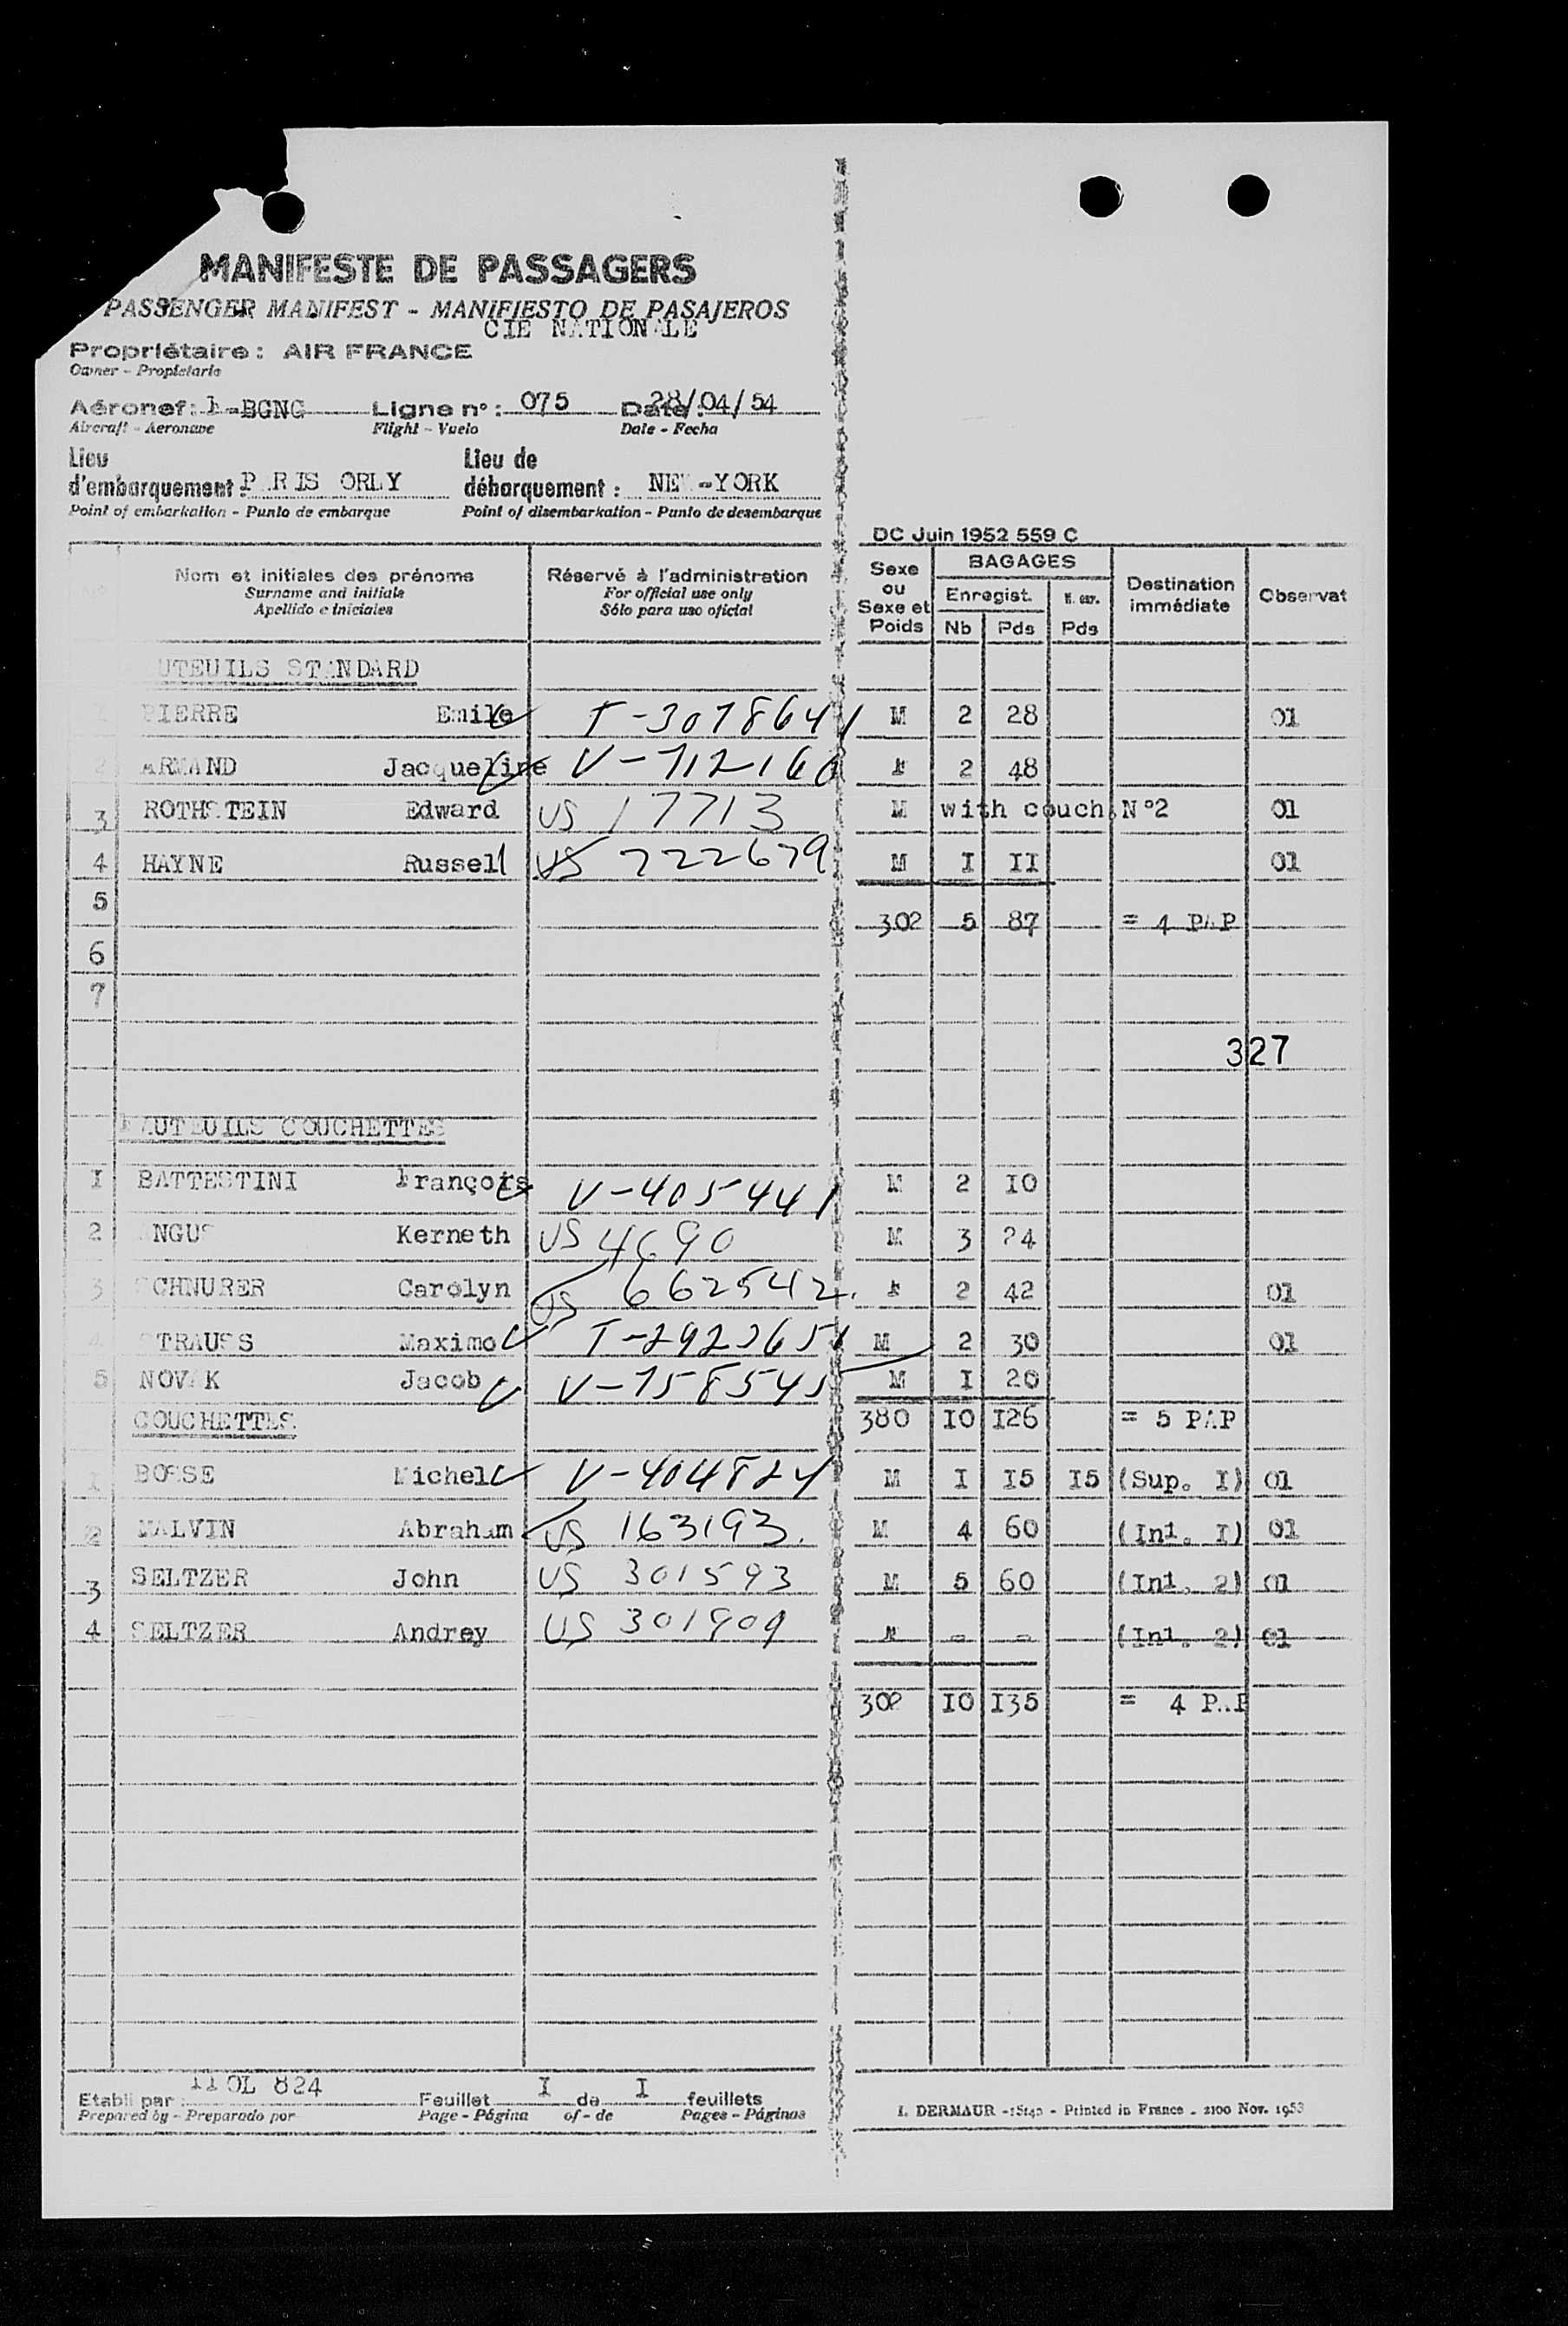 MANIFESTE DE PASSAGERS
PASSENGER MANIFEST - MANIFIESTO DE PASAJEROS
CIE NATIONALE
Propriétaire : AIR FRANCE
Owner - Propietario
Aéronef : -BGNG Ligne n° : 075 Date : 28/04/54
Aircraft - Aeronave Flight - Vuelo Date - Fecha
Lieu d'embarquement : P RIS ORLY Lieu de débarquement : NE -YORK
Point of embarkation - Punto de embarque Point of disembarkation - Punto de desembarque
DC Juin 1952 559 C
N° Nom et initiales des prénoms Réservé à l'administration Sexe ou Sexe et Poids BAGAGES Enregist. Nb Pds Pds Destination immédiate Observat
Surname and initials For official use only
Apellido e iniciales Sólo para uso oficial
UTEUILS ST NDARD
PIERRE Emile T-3078641 M 2 28 01
2 ARMAND Jacqueline V-712160 F 2 48
3 ROTHSTEIN Edward US 17713 M with couch.N°2 01
4 HAYNE Russell US 722679 M I II 01
5 302 5 87 = 4 PAP
6
7
327
FAUTEUILS COUCHETTES
I BATTESTINI François V-405441 M 2 10
2 NGUS Kerneth US 4690 M 3 24
3 SCHNURER Carolyn US 662542. F 2 42 01
4 STRAUSS Maximo T-2923651 M 2 30 01
5 NOVAK Jacob V-758545 M I 20
COUCHETTES 380 IO I26 = 5 PAP
1 BOSSE Michel V-404824 M I I5 I5 (Sup. I) 01
2 MALVIN Abraham US 163193. M 4 60 (Ini. I) 01
3 SELTZER John US 301593 M 5 60 (Ini. 2) 01
4 SELTZER Andrey US 301909 F - - (Ini. 2) 01
302 IO I35 = 4 P..P
Etabli par : 11 OL 824 Feuillet I de I feuillets
Prepared by - Preparado por Page - Página of - de Pages - Páginas
I. DERMAUR - - Printed in France - 2100 Nov. 1953